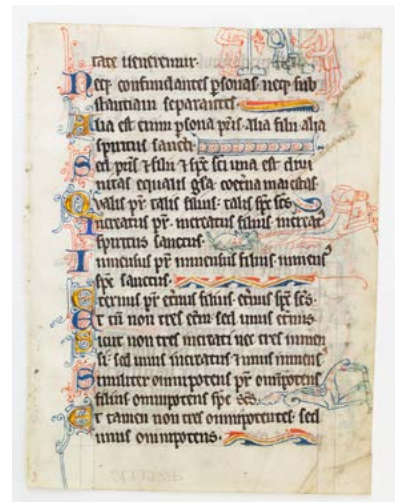 tate ueneremur.
Neq; confundantes psonas neq; sub
stantiam separantes.
Alia est enim psona pris alia filii alia
spiritus sancti.
Sed pris & filii & spc sci una est diui
nitas equalis gla coeterna maiestas.
Qualis pr talis filius. talis spc scs.
Increatus pr. increatus filius increat
spiritus sanctus.
Immensus pr immensus filius immens
spc sanctus.
Eternus pr etnus filius etnus spc scs.
Et tn non tres etni. sed unus etnus.
Sicut non tres increati nec tres immen
si. sed unus increatus & unus immens
Similiter omnipotens pr omnipotens
filius omnipotens spc scs.
Et tamen non tres omnipotentes. sed
unus omnipotens.